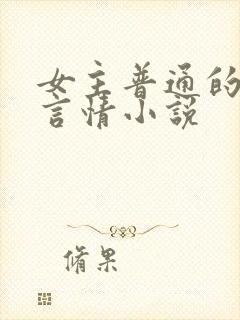 女主普通的
言情小说
脩果